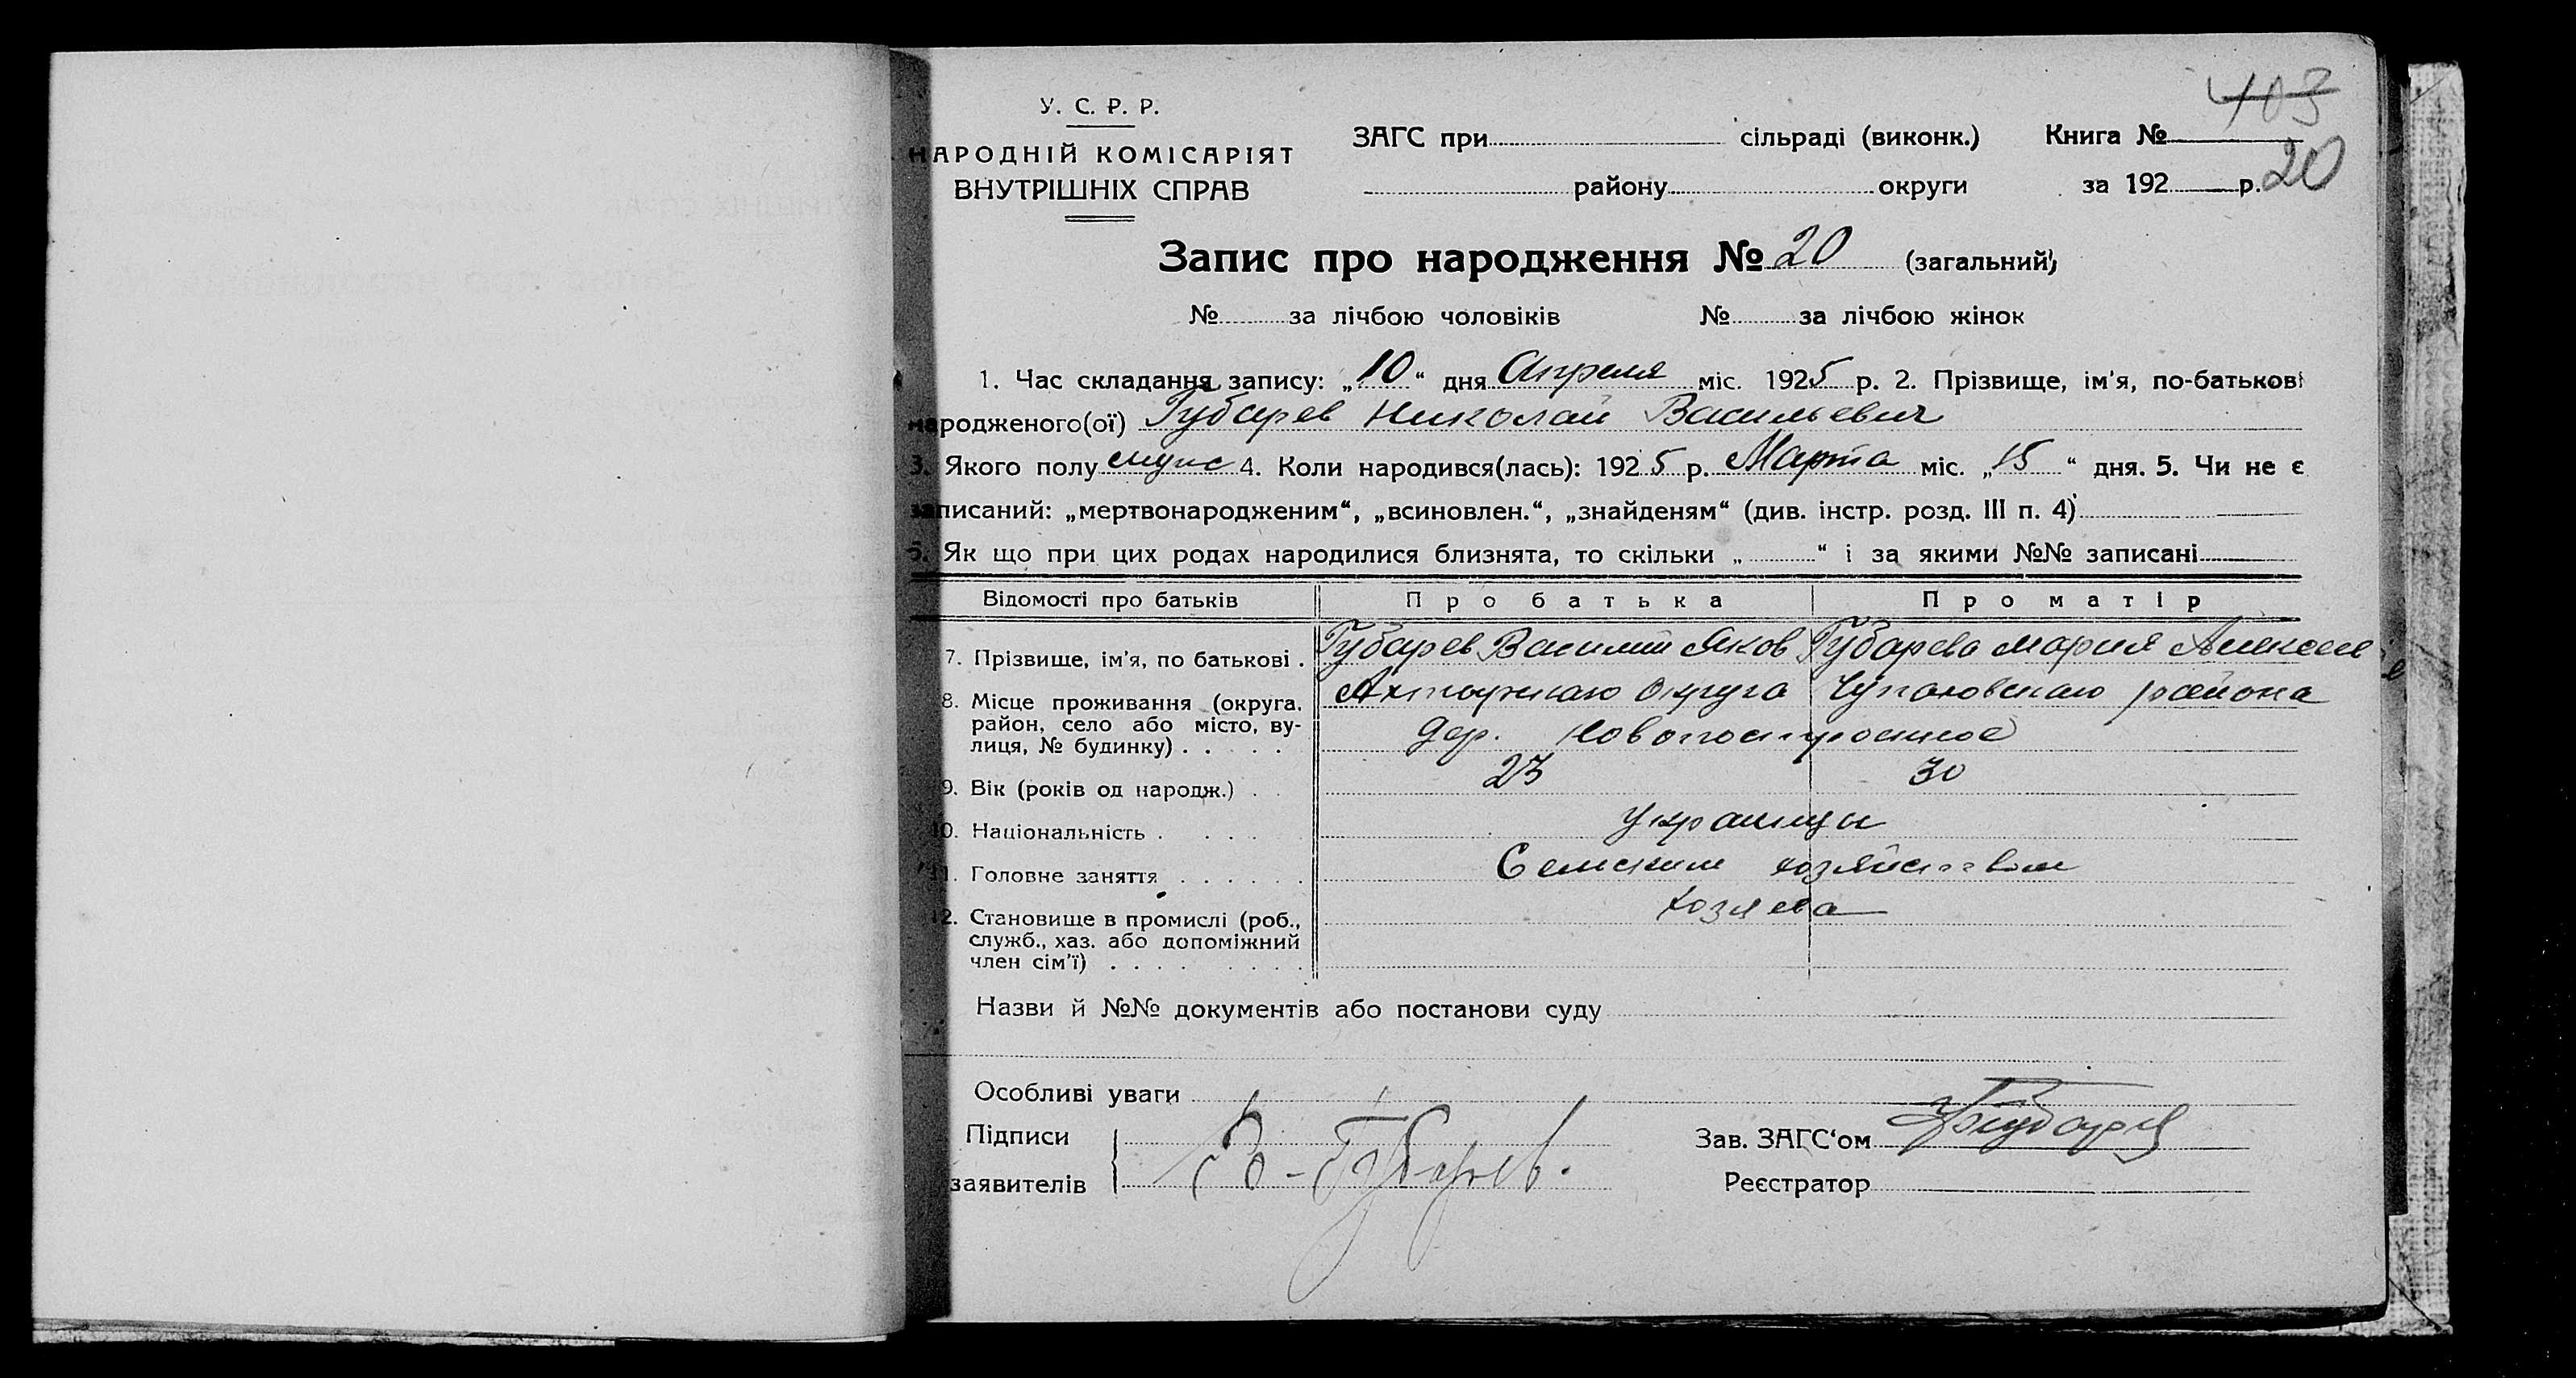 403
У. С. Р. Р.
НАРОДНІЙ КОМІСАРІЯТ
ВНУТРІШНІХ СПРАВ
ЗАГС при сільраді (виконк.) Книга №
району округи за 192 р. 20
Запис про народження № 20 (загальний)
№ за лічбою чоловіків № за лічбою жінок
1. Час складання запису: „10“ дня Апреля міс. 1925 р. 2. Прізвище, ім'я, по-батькові
народженого(ої) Губарев Николай Васильевич
3. Якого полу муж 4. Коли народився(лась): 1925 р. Марта міс. „15“ дня. 5. Чи не є
записаний: „мертвонародженим“, „всиновлен.“, „знайденям“ (див. інстр. розд. III п. 4)
6. Як що при цих родах народилися близнята, то скільки „ “ і за якими №№ записані
Відомості про батьків Про батька Про матір
7. Прізвище, ім'я, по батькові . Губарев Василий Яков Губарева Мария Алексее
8. Місце проживання (округа, район, село або місто, вулиця, № будинку) . . . . округа района
дер. Новопостроенное
9. Вік (років од народж.) . . 23 30
10. Національність . . . . Украинцы
11. Головне заняття . . . . . . Сельским хозяйством
12. Становище в промислі (роб., хозяева
служб., хаз. або допоміжний
член сім'ї) . . . . . . . .
Назви й №№ документів або постанови суду
Особливі уваги
Підписи
заявителів Губарев.
Зав. ЗАГС‘ом
Реєстратор